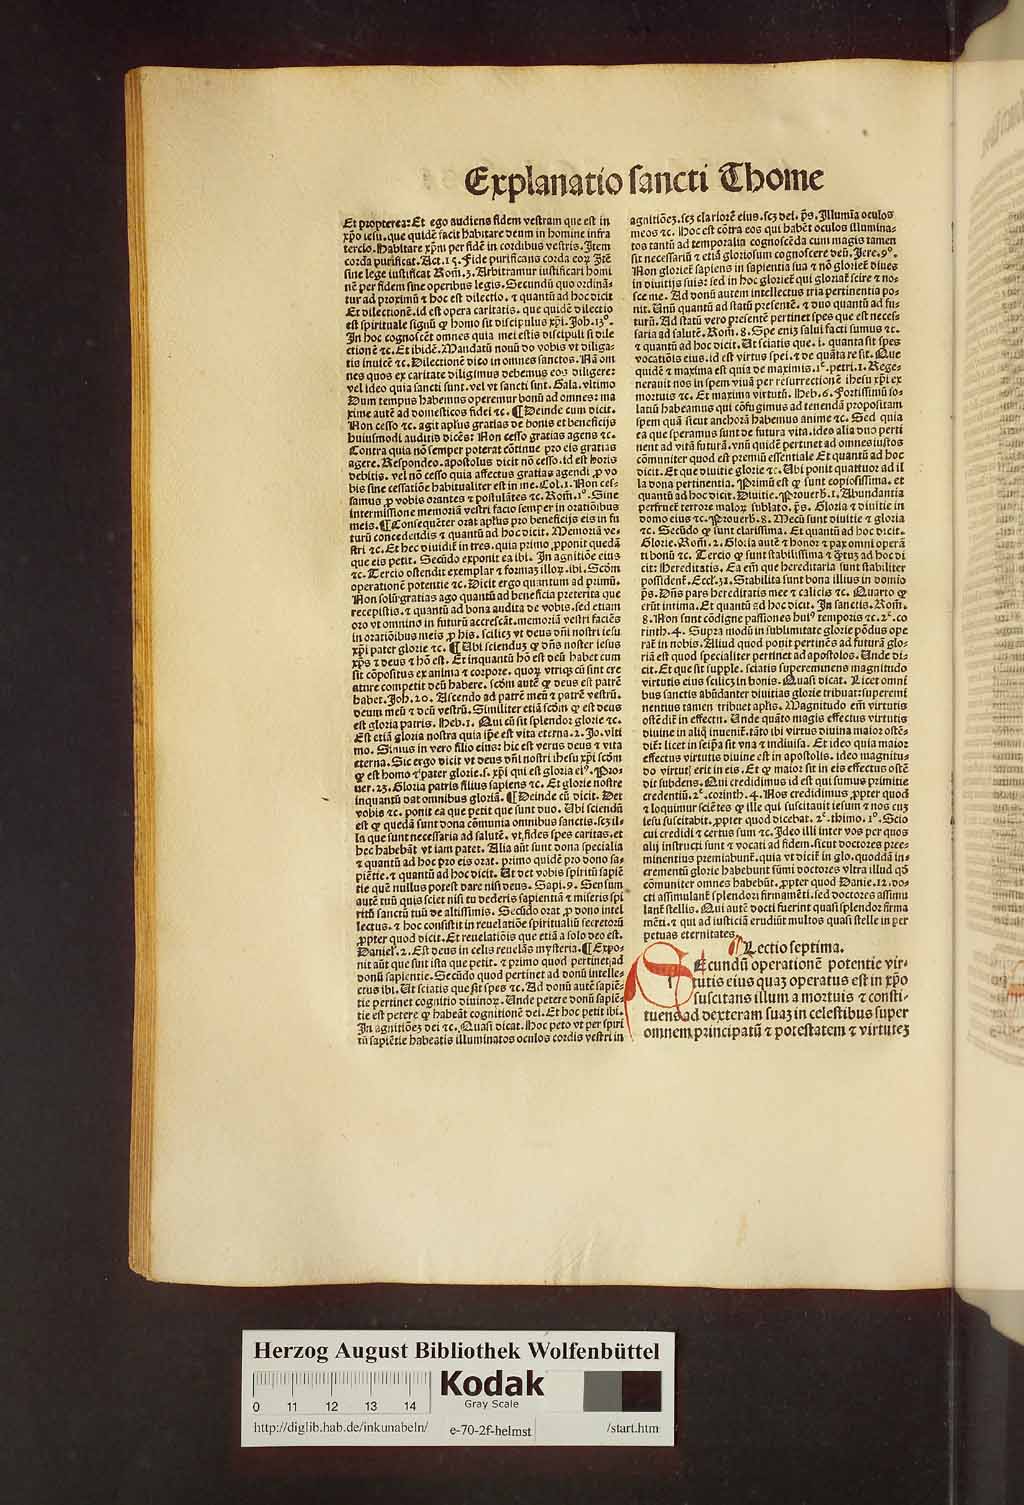 Explanatio sancti Thome
Et propterea: Et ego audiens fidem vestram que est in
xp̄o iesu. que quidē facit habitare deum in homine infra
tercio. Habitare xp̄m per fidē in cordibus vestris. Itē
corda purificat. Act. 15. Fide purificans corda eoꝝ Itē
sine lege iustificat Rom̄. 3. Arbitramur iustificari homi
nē per fidem sine operibus legis. Secundū quo ordinā⸗
tur ad proximū ⁊ hoc est dilectio. ⁊ quantū ad hoc dicit
Et dilectionē. id est opera caritatis. que quidē dilectio
est spirituale signū ꝙ homo sit discipulus xp̄i. Joh. 13°.
In hoc cognoscēt omnes quia mei estis discipuli si dile
ctionē ⁊c. Et ibidē. Mandatū nouū do vobis vt diliga⸗
tis inuicē ⁊c. Dilectionē dico in omnes sanctos. Nā om
nes quos ex caritate diligimus debemus eos diligere:
vel ideo quia sancti sunt. vel vt sancti sint. Gala. vltimo
Dum tempus habemus operemur bonū ad omnes: ma
xime autē ad domesticos fidei ⁊c. ¶ Deinde cum dicit.
Non cesso ⁊c. agit apl̄us gratias de bonis et beneficijs
huiusmodi auditis dicēs: Non cesso gratias agens ⁊c.
Contra quia nō semper poterat cōtinue pro eis gratias
agere. Respondeo. apostolus dicit nō cesso. id est horis
debitis. vel nō cesso quia affectus gratias agendi ꝓ vo
bis sine cessatiōe habitualiter est in me. Col. 1. Non ces⸗
samus ꝓ vobis orantes ⁊ postulātes ⁊c. Rom̄. 1°. Sine
intermissione memoriā vestri facio semper in orationibus
meis. ¶ Consequēter orat apl̄us pro beneficijs eis in fu
turū concedendis ⁊ quantū ad hoc dicit. Memoriā ve⸗
stri ⁊c. Et hec diuidit̄ in tres. quia primo ꝓponit quedā
que eis petit. Secūdo exponit ea ibi. In agnitiōe eius
⁊c. Tercio ostendit exemplar ⁊ formaꝫ illoꝝ. ibi. Scd̄m
operationē potentie ⁊c. Dicit ergo quantum ad primū.
Non solū gratias ago quantū ad beneficia preterita que
recepistis. ⁊ quantū ad bona audita de vobis. sed etiam
oro vt omnino in futurū accrescāt. memoriā vestri faciēs
in orationibus meis ꝓ his. scilicꝫ vt deus dn̄i nostri iesu
xp̄i pater glorie ⁊c. ¶ Ubi sciendum ꝙ dn̄s noster iesus
xp̄s ⁊ deus ⁊ hō est. Et inquantū hō est deū habet cum
sit cōpositus ex anima ⁊ corpore. quoꝝ vtriqꝫ cū sint cre
ature competit deū habere. scd̄m autē ꝙ deus est patrē
habet. Joh. 20. Ascendo ad patrē meū ⁊ patrē vestrū.
deum meū ⁊ deū vestrū. Similiter etiā scd̄m ꝙ est deus
est gloria patris. Heb. 1. Qui cū sit splendor glorie ⁊c.
Est etiā gloria nostra quia ip̄e est vita eterna. 1. Jo. vlti
mo. Simus in vero filio eius: hic est verus deus ⁊ vita
eterna. Sic ergo dicit vt deus dn̄i nostri ihesu xp̄i scd̄m
ꝙ est homo ⁊ pater glorie. s. xp̄i qui est gloria ei⁹. Pro⸗
uer. 23. Gloria patris filius sapiens ⁊c. Et glorie nostre
inquantū dat omnibus gloriā. ¶ Deinde cū dicit. Det
vobis ⁊c. ponit ea que petit que sunt duo. Ubi sciendū
est ꝙ quedā sunt dona cōmunia omnibus sanctis. scꝫ il⸗
la que sunt necessaria ad salutē. vt fides spes caritas. et
hec habebāt vt iam patet. Alia aūt sunt dona specialia
⁊ quantū ad hoc pro eis orat. primo quidē pro dono sa⸗
piētie. ⁊ quantū ad hoc dicit. Ut det vobis spiritū sapiē
tie quē nullus potest dare nisi deus. Sapi. 9. Sensum
autē tuū quis sciet nisi tu dederis sapientiā ⁊ miseris spi
ritū sanctū tuū de altissimis. Secūdo orat ꝓ dono intel
lectus. ⁊ hoc consistit in reuelatiōe spiritualiū secretorū
ꝓpter quod dicit. Et reuelationis que etiā a solo deo est.
Daniel. 2. Est deus in celis reuelās mysteria. ¶ Expo⸗
nit aūt que sunt ista que petit. ⁊ primo quod pertinet ad
donū sapientie. Secūdo quod pertinet ad donū intelle⸗
ctus ibi. Ut sciatis que sit spes ⁊c. Ad donū autē sapiē⸗
tie pertinet cognitio diuinoꝝ. Unde petere donū sapiē⸗
tie est petere ꝙ habeāt cognitionē dei. Et hoc petit ibi.
In agnitiōeꝫ dei ⁊c. Quasi dicat. Hoc peto vt per spiri
tū sapiētie habeatis illuminatos oculos cordis vestri in
agnitiōeꝫ. scꝫ clariorē eius. scꝫ dei. p̄s. Illumīa oculos
meos ⁊c. Hoc est cōtra eos qui habēt oculos illumina⸗
tos tantū ad temporalia cognoscēda cum magis tamen
sit necessariū ⁊ etiā gloriosum cognoscere deū. Jere. 9°.
Non gloriet̄ sapiens in sapientia sua ⁊ nō gloriet̄ diues
in diuitijs suis: sed in hoc gloriet̄ qui gloriat̄ scire ⁊ no⸗
sce me. Ad donū autem intellectus tria pertinentia po⸗
nit. Unū quantū ad statū presentē. ⁊ duo quantū ad fu⸗
turū. Ad statū vero presentē pertinet spes que est neces⸗
saria ad salutē. Rom̄. 8. Spe enim salui facti sumus ⁊c.
⁊ quantū ad hoc dicit. Ut sciatis que. i. quanta sit spes
vocatiōis eius. id est virtus spei. ⁊ de quāta re sit. Que
quidē ⁊ maxima est quia de maximis. 1ᵉ. petri. 1. Rege⸗
nerauit nos in spem viuā per resurrectionē ihesu xp̄i ex
mortuis ⁊c. Et maxima virtutū. Heb. 6. Fortissimū so⸗
latiū habeamus qui cōfugimus ad tenendā propositam
spem quā sicut anchorā habemus anime ⁊c. Sed quia
ea que speramus sunt de futura vita. ideo alia duo perti
nent ad vitā futurā. vnū quidē pertinet ad omnes iustos
cōmuniter quod est premiū essentiale Et quantū ad hoc
dicit. Et que diuitie glorie ⁊c. Ubi ponit quattuor ad il
la dona pertinentia. Primū est ꝙ sunt copiosissima. et
quantū ad hoc dicit. Diuitie. Prouerb. 1. Abundantia
perfruet̄ terrore maloꝝ sublato. p̄s. Gloria ⁊ diuitie in
domo eius ⁊c. Prouerb. 8. Mecū sunt diuitie ⁊ gloria
⁊c. Secūdo ꝙ sunt clarissima. Et quantū ad hoc dicit.
Glorie. Rom̄. 2. Gloria autē ⁊ honor ⁊ pax omni operā
ti bonū ⁊c. Tercio ꝙ sunt stabilissima ⁊ q̄tuꝫ ad hoc di
cit: Hereditatis. Ea em̄ que hereditaria sunt stabiliter
possident̄. Eccl̄. 31. Stabilita sunt bona illius in domio
p̄s. Dn̄s pars hereditatis mee ⁊ calicis ⁊c. Quarto ꝙ
erūt intima. Et quantū ad hoc dicit. In sanctis. Rom̄.
8. Non sunt cōdigne passiones hui⁹ temporis ⁊c. 2ᵉ. co
rinth. 4. Supra modū in sublimitate glorie pōdus ope
rat̄ in nobis. Aliud quod ponit pertinēs ad futurā glo⸗
riā est quod specialiter pertinet ad apostolos. Unde di⸗
cit. Et que sit supple. sciatis supereminens magnitudo
virtutis eius scilicꝫ in bonis. Quasi dicat. Licet omni
bus sanctis abūdanter diuitias glorie tribuat: superemi
nentius tamen tribuet apl̄is. Magnitudo em̄ virtutis
ostēdit̄ in effectu. Unde quāto magis effectus virtutis
diuine in aliq̄ inuenit̄. tāto ibi virtus diuina maior ostē⸗
dit̄: licet in seip̄a sit vna ⁊ indiuisa. Et ideo quia maior
effectus virtutis diuine est in apostolis. ideo magnitu⸗
do virtut̄ erit in eis. Et ꝙ maior sit in eis effectus ostē
dit subdens. Qui credidimus id est qui sumus primitie
credentiū. 2ᵉ. corinth. 4. Nos credidimus ꝓpter quod
⁊ loquimur sciētes ꝙ ille qui suscitauit iesum ⁊ nos cuꝫ
iesu suscitabit. ꝓpter quod dicebat. 2ᵉ. thimo. 1°. Scio
cui credidi ⁊ certus sum ⁊c. Ideo illi inter vos per quos
alij instructi sunt ⁊ vocati ad fidem. sicut doctores pree⸗
minentius premiabunt̄. quia vt dicit̄ in glo. quoddā in⸗
crementū glorie habebunt sūmi doctores vltra illud qd̄
cōmuniter omnes habebūt. ꝓpter quod Danie. 12. do⸗
cti assimulant̄ splendori firmamēti. sed doctores assimu
lant̄ stellis. Qui autē docti fuerint quasi splendor firma
mēti. ⁊ qui ad iusticiā erudiūt multos quasi stelle in per
petuas eternitates.
Lectio septima.
Secundū operationē potentie vir⸗
tutis eius quaꝫ operatus est in xp̄o
suscitans illum a mortuis ⁊ consti⸗
tuens ad dexteram suaꝫ in celestibus super
omnem principatū ⁊ potestatem ⁊ virtuteꝫ
Herzog August Bibliothek Wolfenbüttel
0 11 12 13 14
Kodak
Gray Scale
http://diglib.hab.de/inkunabeln/ e-70-2f-helmst /start.htm